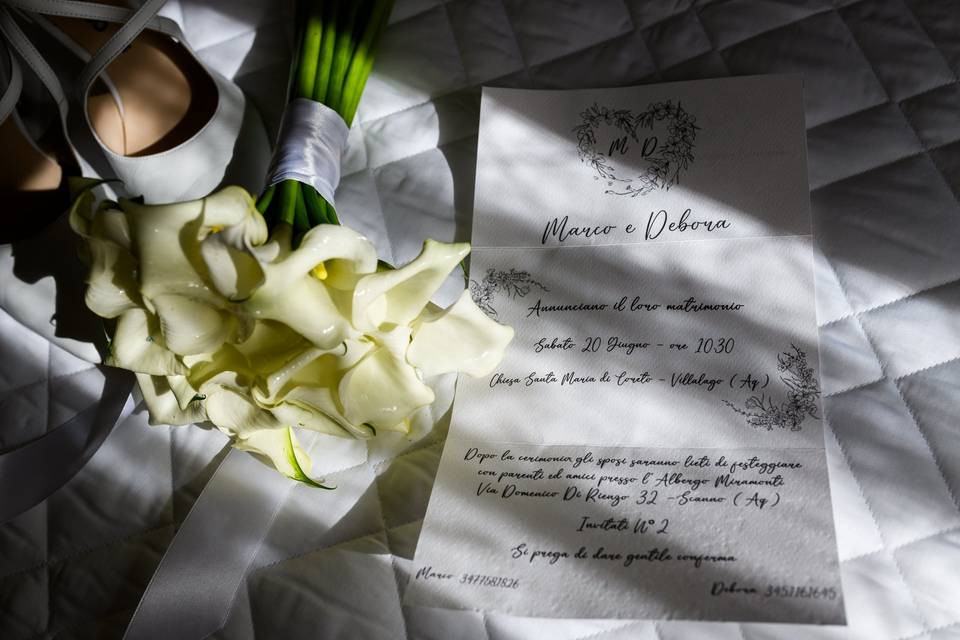 M D
Marco e Debora
Annunciano il loro matrimonio
Sabato 20 Giugno - ore 10:30
Chiesa Santa Maria di Loreto - Villalago (Aq)
Dopo la cerimonia gli sposi saranno lieti di festeggiare
con parenti ed amici presso l'Albergo Miramonti
Via Domenico Di Rienzo 32 - Scanno (Aq)
Invitati N° 2
Si prega di dare gentile conferma
Marco 3477581826
Debora 3451161645